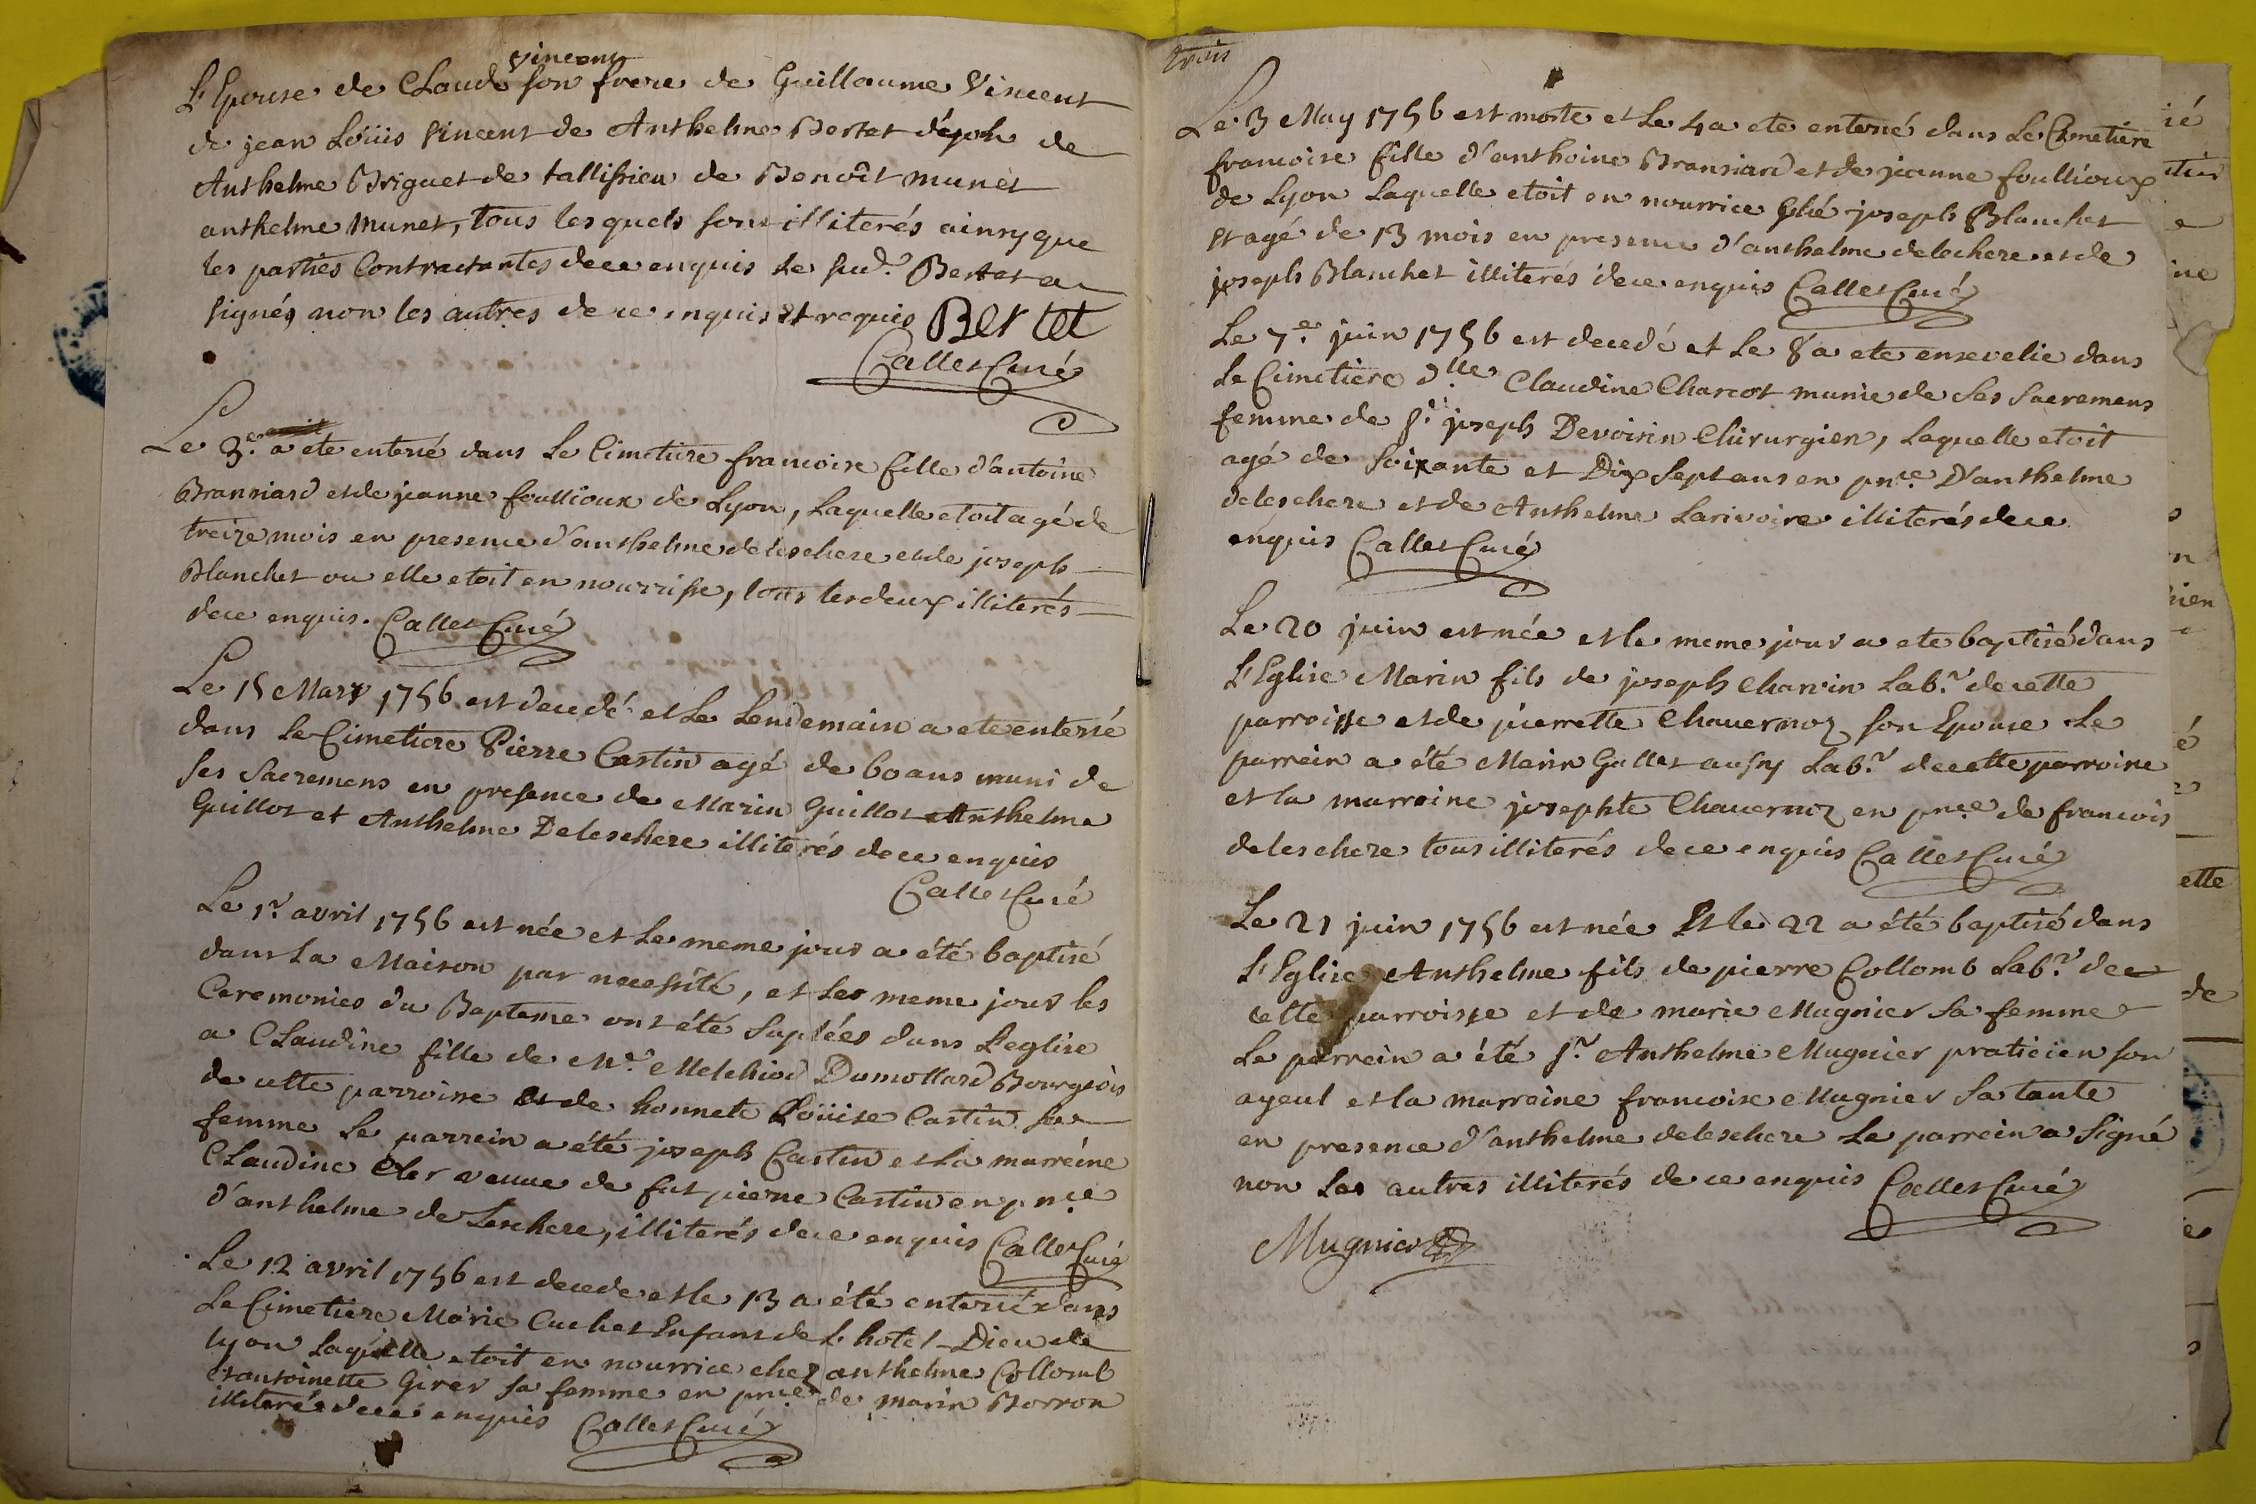 vincent
L'Epouse de Claude son frere de Guillaume Vincent
de jean Loüis Vincent de Anthelme Bertet d'éyoh de
Anthelme Briguet de tallissieu de Benoît munet
anthelme munet, tous lesquels sont illiterés ainsy que
les parties Contractantes de ce enquis le sud. Bertet a
signés non les autres de ce enquis et requis Bertet
Callet Curé
Le 3e. a ete enterré dans Le Cimetiere francoise fille d'antoine
Branniard et de jeanne foullioux de Lyon, Laquelle etoit agé de
treize mois en presence d'anthelme deleschere et de joseph
Blanchet ou elle etoit en nourrisse, tous les deux illiterés
de ce enquis. Callet Curé
Le 15 Mars 1756 est decedé et Le Lendemain a ete enterré
dans Le Cimetiere Pierre Castin agé de 60 ans muni de
ses Sacremens en presence de Marin Guillot Anthelme
Guillot et Anthelme Deleschere illiterés de ce enquis
Callet Curé
Le 1r. avril 1756 est née et Le meme jour a été baptisé
dans La Maison par necessité, et Les meme jour les
Ceremonies du Bapteme ont été Suplées dans L'eglise
a Claudine fille de Mr. Melchior Dumollard Bourgeois
de cette parroisse et de honnete Loüise Castin sa
femme Le parrein a été joseph Castin et La marreine
Claudine Cler veuve de fut pierre Castin en pnce.
d'anthelme de Leschere, illiterés de ce enquis Callet Curé
Le 12 avril 1756 est decede et le 13 a été enterré dans
Le Cimetiere Marie Cuchet Enfant de L'hotel-Dieu de
Lyon Laquelle etoit en nourrice chez anthelme Collomb
et antoinette Girer sa femme en pnce. de marin Borron
illiterés de ce enquis Callet Curé
trois
Le 3 May 1756 est morte et Le 4 a ete enterré dans Le Cimetiere
francoise fille d'anthoine Branniard et de jeanne foullioux
de Lyon Laquelle etoit en nourrice ché joseph Blanchet
et agé de 13 mois en presence d'anthelme delechere et de
joseph Blanchet illiterés de ce enquis Callet Curé
Le 7e. juin 1756 est decedé et Le 8 a ete ensevelie dans
Le Cimetiere dlle Claudine Charcot munie de ses Sacremens
femme de sr. joseph Devoisin Chirurgien, Laquelle etoit
agé de Soixante et Dix Sept ans en pnce. D'anthelme
deleschere et de Anthelme Larivoire illiterés de ce
enquis Callet Curé
Le 20 juin est née et le meme jour a ete baptisé dans
L'Eglise Marin fils de joseph Charvin Labr. de cette
parroisse et de pierrette Chavernoz son Epouse Le
parrein a été Marin Gallet aussy Labr. de cette parroisse
et la marraine josephte Chavernoz en pnce. de francois
deleschere tous illiterés de ce enquis Callet Curé
Le 21 juin 1756 est née Et le 22 a été baptisé dans
L'Eglise Anthelme fils de pierre Collomb Labr. de
cette parroisse et de marie Mugnier Sa femme
Le parrein a été sr. Anthelme Mugnier praticien son
ayeul et la marraine francoise Mugnier Sa tante
en presence d'anthelme deleschere Le parrein a Signé
non Les autres illiterés de ce enquis Callet Curé
Mugnier